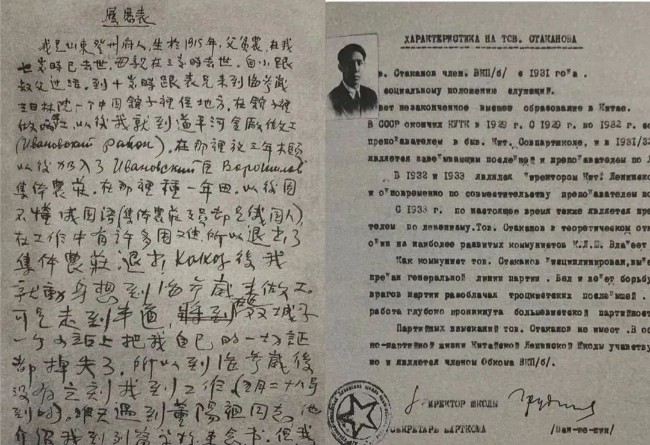 履歷表
我是山東登州府人,生於1915年,父務農,在我
歲時已去世,母親在三歲時去世。自小跟
叔父過活,到十歲時跟表兄到海參崴
一个中國館子裡住地方,在館子裡
做 ,以後我就到道平河金廠做工
(Ивановский район).在那裡做三年
以後加入了Ивановский 区 Ворошилов
集体農莊,在那裡種一年田,以後因
不懂俄国语(集体農莊之員都是俄國人),
在工作中有許多困 ,所以退出了
集体農莊.退出 колхоз 後我
就動身想到海参崴去做工
可是走到半道, 雙城子
一个 站上把我自己的一切証
都掉失了,所以到海参崴後
没有立刻找到工作.( 月二十八号
到的).昨天遇到董陽祖同志,他
介绍我到 學校来念书.但我
ХАРАКТЕРИСТИКА НА ТОВ. СТАКАНОВА
в. Стаканов член ВКП/б/ с 1931 го"а
оциальному положение служащий.
еет незаконченное высшее образование в Китае.
В СССР окончил КУТК в 1929 г. С 1929 г. по 1932 г.
препо"авателем в быв. Кит. Совпартшколе, и в 1931/3
является заве"ывающим после"ней и препо"авателем по Л
В 1932 и 1933 являлся "иректором Кит. Ленинско
и о"новременно по совместительству препо"авателем
С 1933 г. по настоящее время также является пре
телем по ленинизму. Тов. Стаканов в теоретическом от
о"ин из наиболее развитых коммунистов К.Л.Ш. Вла"еет
Как коммунист тов. Стаканов "исциплинирован, вы
пре"ан генеральной линии партии. Вел и ве"ет борьбу
врагов партии разоблачая троцкистских после"ышей.
работа глубоко проникнута большевистской партийност
Партийных взысканий тов. Стаканов не имеет. В об
но-партийной жизни Китайской Ленинской Школы участву
но и является членом Обкома ВКП/б/.
ДИРЕКТОР ШКОЛЫ
СЕКРЕТАРЬ ПАРТКОМА /Ван-